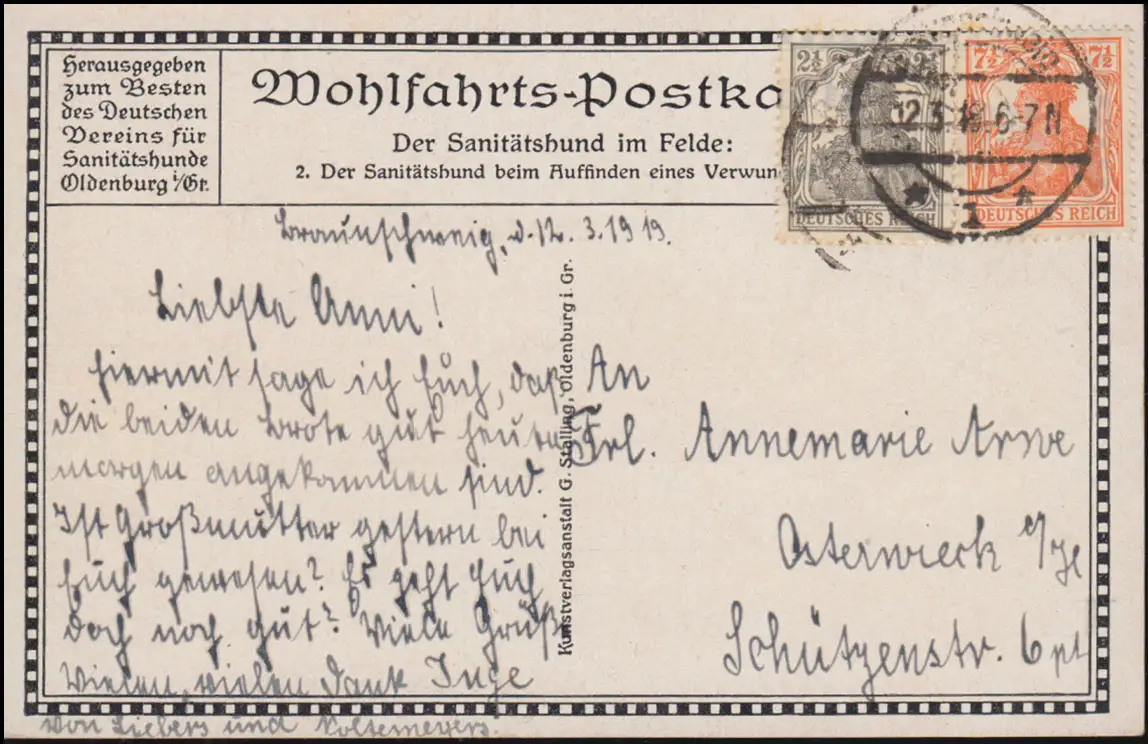 Herausgegeben
zum Besten
des Deutschen
Vereins für
Sanitätshunde
Oldenburg i/Gr.
Wohlfahrts-Postka
Der Sanitätshund im Felde:
2. Der Sanitätshund beim Auffinden eines Verwun
2½ 2½
DEUTSCHES REICH
7½ 7½
DEUTSCHES REICH
12.3.19. 6-7N
* 1 *
Braunschweig, d. 12. 3. 1919.
Liebste Anni!
Hiermit sage ich Euch, daß
die beiden Brote gut heute
morgen angekommen sind.
Ist Großmutter gestern bei
Euch gewesen? Es geht Euch
doch noch gut? Viele Grüße
Vielen, vielen Dank Inge
von Liebers und Noltemeyers.
Kunstverlagsanstalt G. Stalling, Oldenburg i. Gr.
An
Frl. Annemarie
Osterwieck a/H
Schützenstr. 6